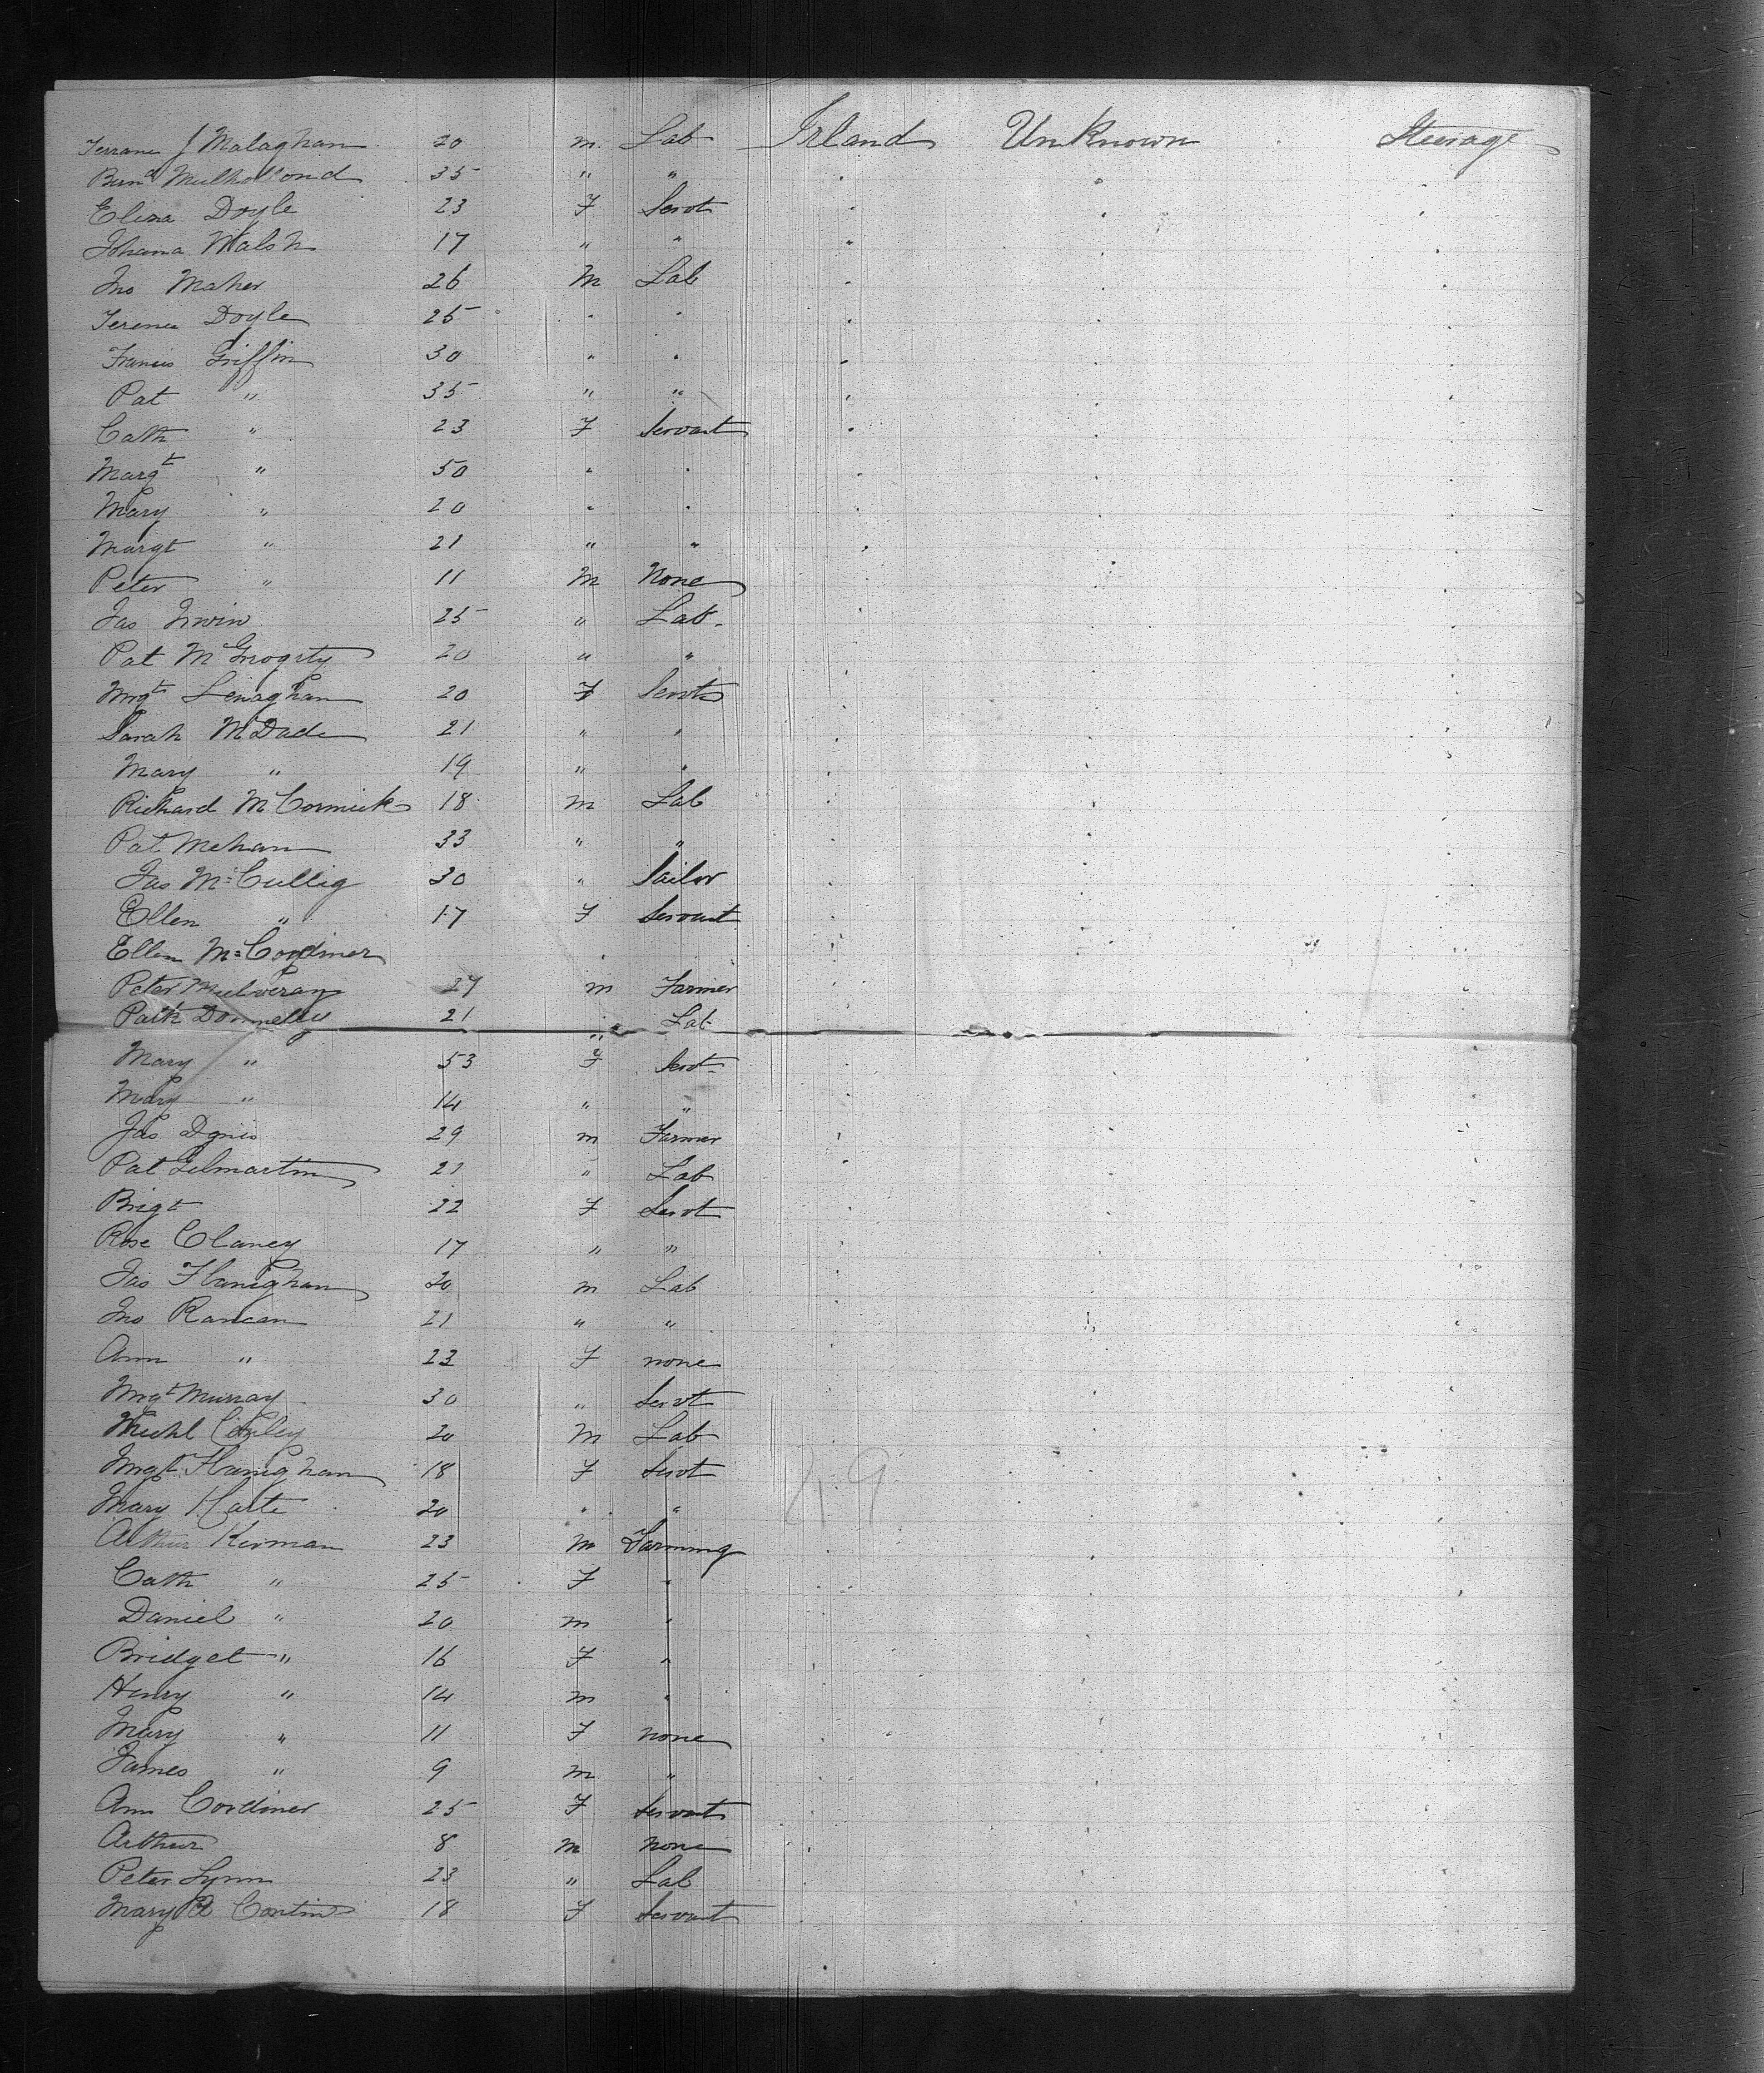 Terrane J Malaghan 20 m Lab Irland UnKnown Steerage
Bernd Mulholland 35 " "
Eliza Doyle 23 F Servt
Johana Walsh 17 " "
Jno Maher 26 M Lab
Terence Doyle 25 " "
Francis Griffin 30 " "
Pat " 35 " "
Cath " 23 F Servant
Margt " 50 " "
Mary " 20 " "
Margt " 21 " "
Peter " 11 M None
Jas Irwin 25 " Lab
Pat 20 " "
Mrgt Lenaghan 20 F Servt
Sarah McDade 21 " "
Mary " 19 " "
Richard McCormick 18 m Lab
Pat Mehan 33 " "
Jas Mc Cullig 30 " Sailor
Ellen " 17 F Servant
Ellen Mc
Peter 27 m Farmer
Patk Donnelly 21 " Lab
Mary " 53 F Servt
Mary " 14 " "
Jas 29 m Farmer
Pat Gilmartin 21 " Lab
Brigt 22 F Servt
Rose Clancy 17 " "
Jas Flanighan 20 m Lab
Jno Rancan 21 " "
Ann " 23 F none
Mrgt Murray 30 " Servt
Michl 20 M Lab
Mrgt Flanighan 18 F Servt
Mary Harte 20 " "
Arthur Kirman 23 M Farming
Cath " 25 F "
Daniel " 20 m "
Bridget " 16 F "
Henry " 14 m "
Mary " 11 F none
James " 9 m "
Ann Cordiner 25 F Servant
Arthur 8 m none
Peter Lynn 23 " Lab
Mary A Contin 18 F Servant